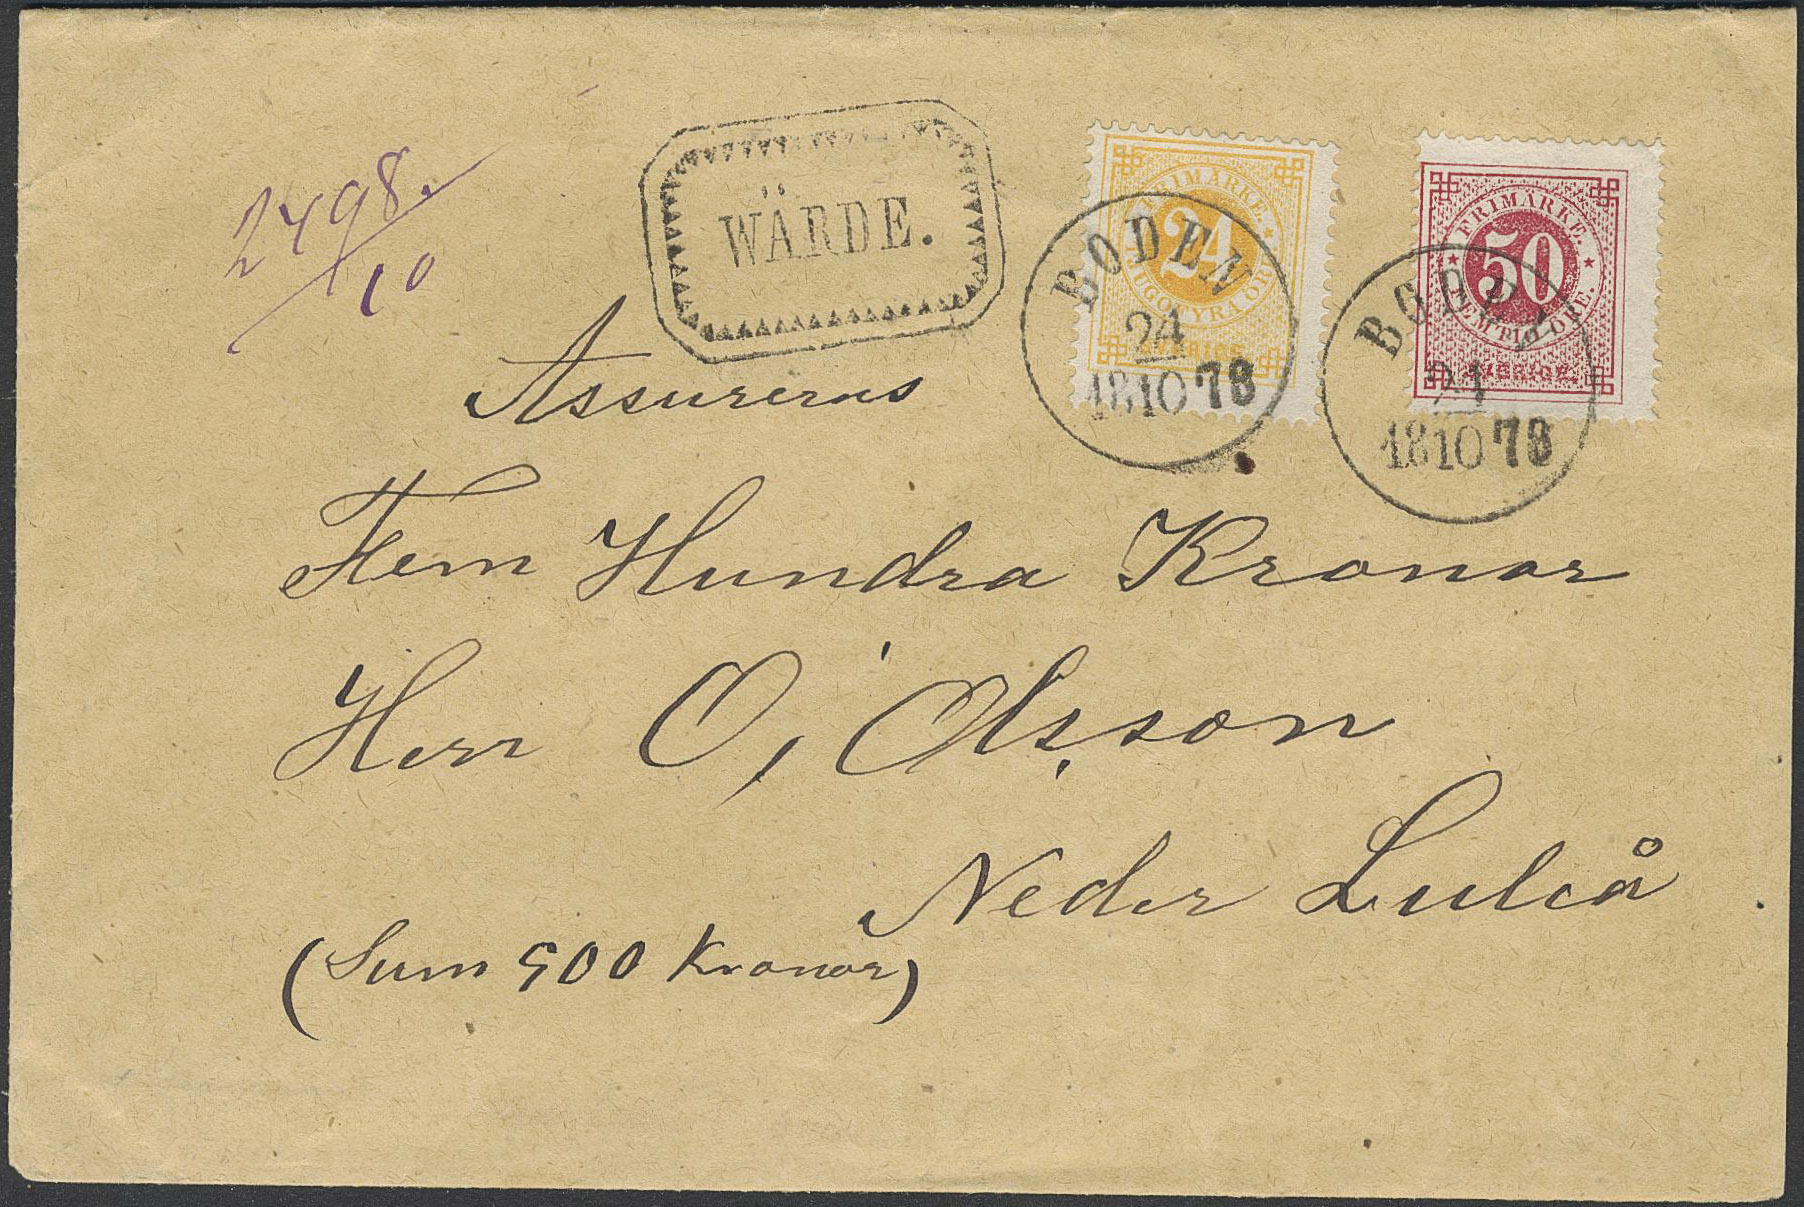 2498.
10
WÄRDE.
FRIMÄRKE.
24
TJUGOFYRA ÖRE
SVERIGE.
BODEN
24
1810 78
FRIMÄRKE.
50
FEMTIO ÖRE.
SVERIGE.
BODEN
24
1810 78
Assureras
Fem Hundra Kronor
Herr O, Olsson
Neder Luleå
(Sum 500 Kronor)